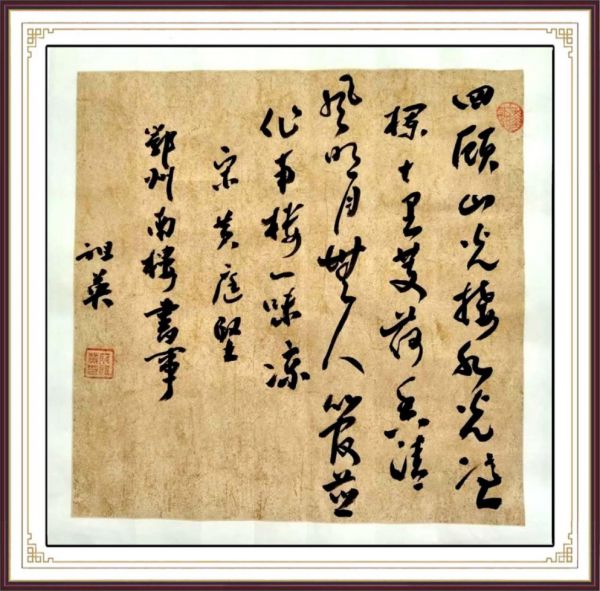 四顧山光接水光憑
欄十里芰荷香清
風明月無人管並
作南樓一味涼
宋黄庭堅
鄂州南樓書事
祖英